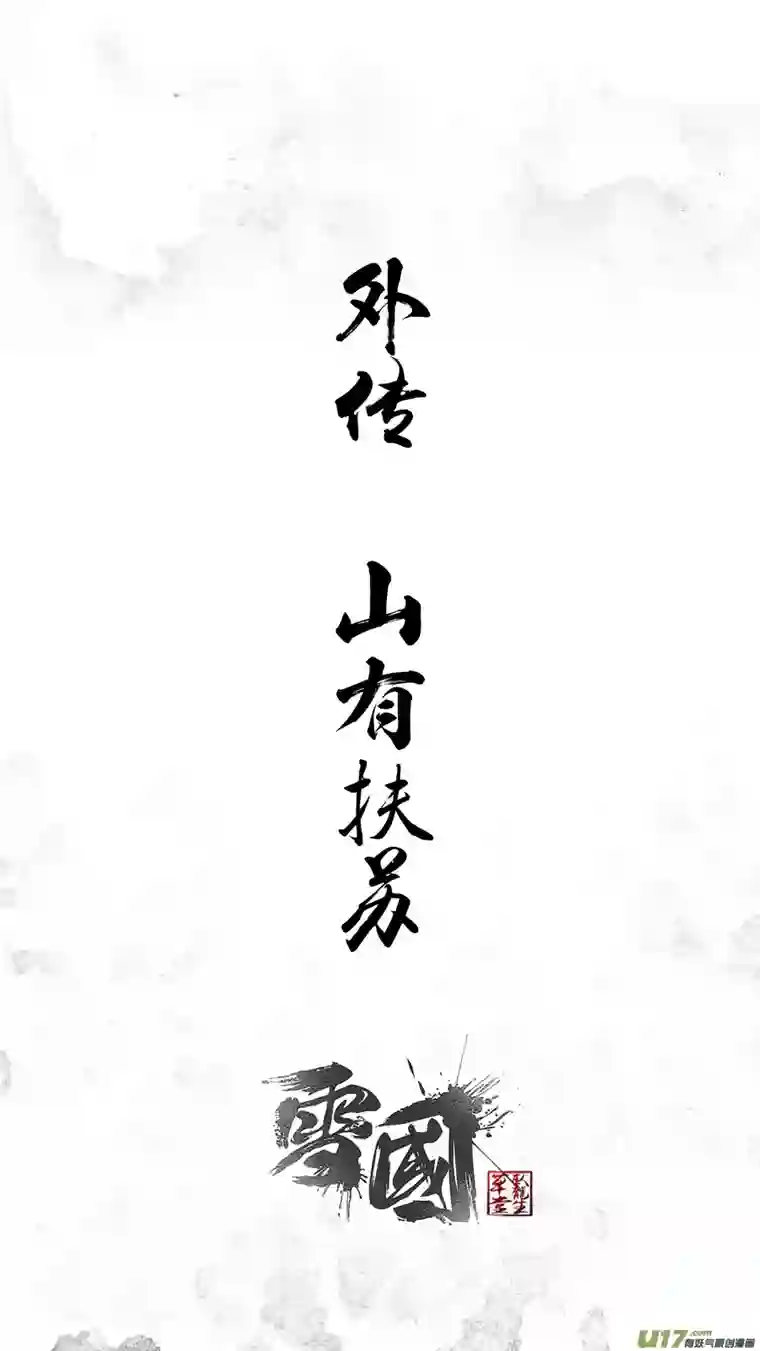 外传
山有扶苏
雪國
U17.com
有妖气原创漫画